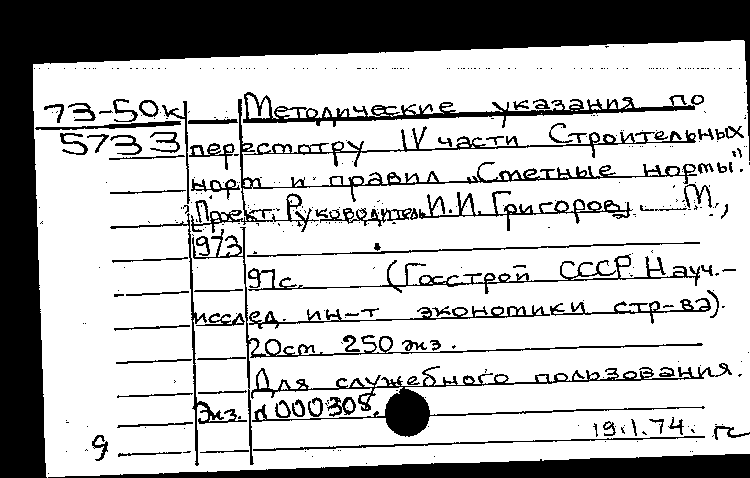 73-50к Методические указания по
5733 пересмотру IV части Строительных
норм и правил „Сметные нормы".
Проект. Руководитель И.И. Григоров. М.,
1973.
97с. (Госстрой СССР. Науч.-
исслед. ин-т экономики стр-ва).
20см. 250 экз.
Для служебного пользования.
Экз. № 000308.
19.1.74. гс